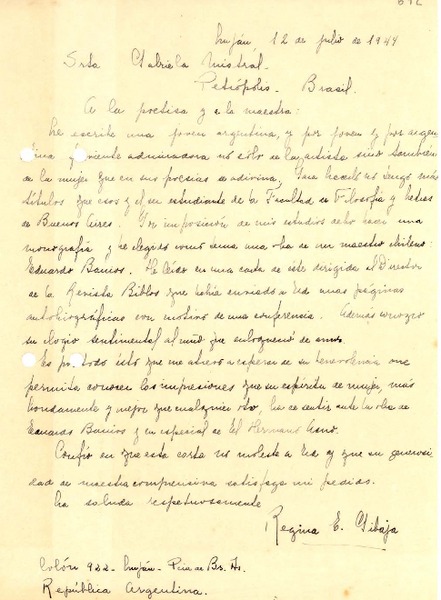 Luján, 12 de julio de 1944
Srta Gabriela Mistral.
Petrópolis - Brasil.
A la poetisa y a la maestra:
Le escribe una joven argentina, y por joven y por argen
tina ferviente admiradora no sólo de la artista sino también
de la mujer que en sus poesías se adivina. Para hacerlo no tengo más
títulos que esos y el ser estudiante de la Facultad de Filosofía y Letras
de Buenos Aires. Por imposición de mis estudios debo hacer una
monografía y he elegido como tema una obra de un maestro chileno:
Eduardo Barrios. He leído en una carta de éste dirigida al Director
de la Revista Biblos que había enviado a Ud unas páginas
autobiográficas con motivo de una conferencia. Además conozco
su elogio sentimental al niño que enloqueció de amor.
Es por todo ésto que me atrevo a esperar de su benevolencia me
permita conocer las impresiones que su espíritu de mujer, más
hondamente y mejor que cualquier otro, ha de sentir ante la obra de
Eduardo Barrios y en especial de El Hermano Asno.
Confío en que esta carta no moleste a Ud y que su generosi
dad de maestra comprensiva satisfaga mi pedido.
La saluda respetuosamente
Regina E. Gibaja
Colón 922 - Luján - Pcia. de Bs. As.
República Argentina.